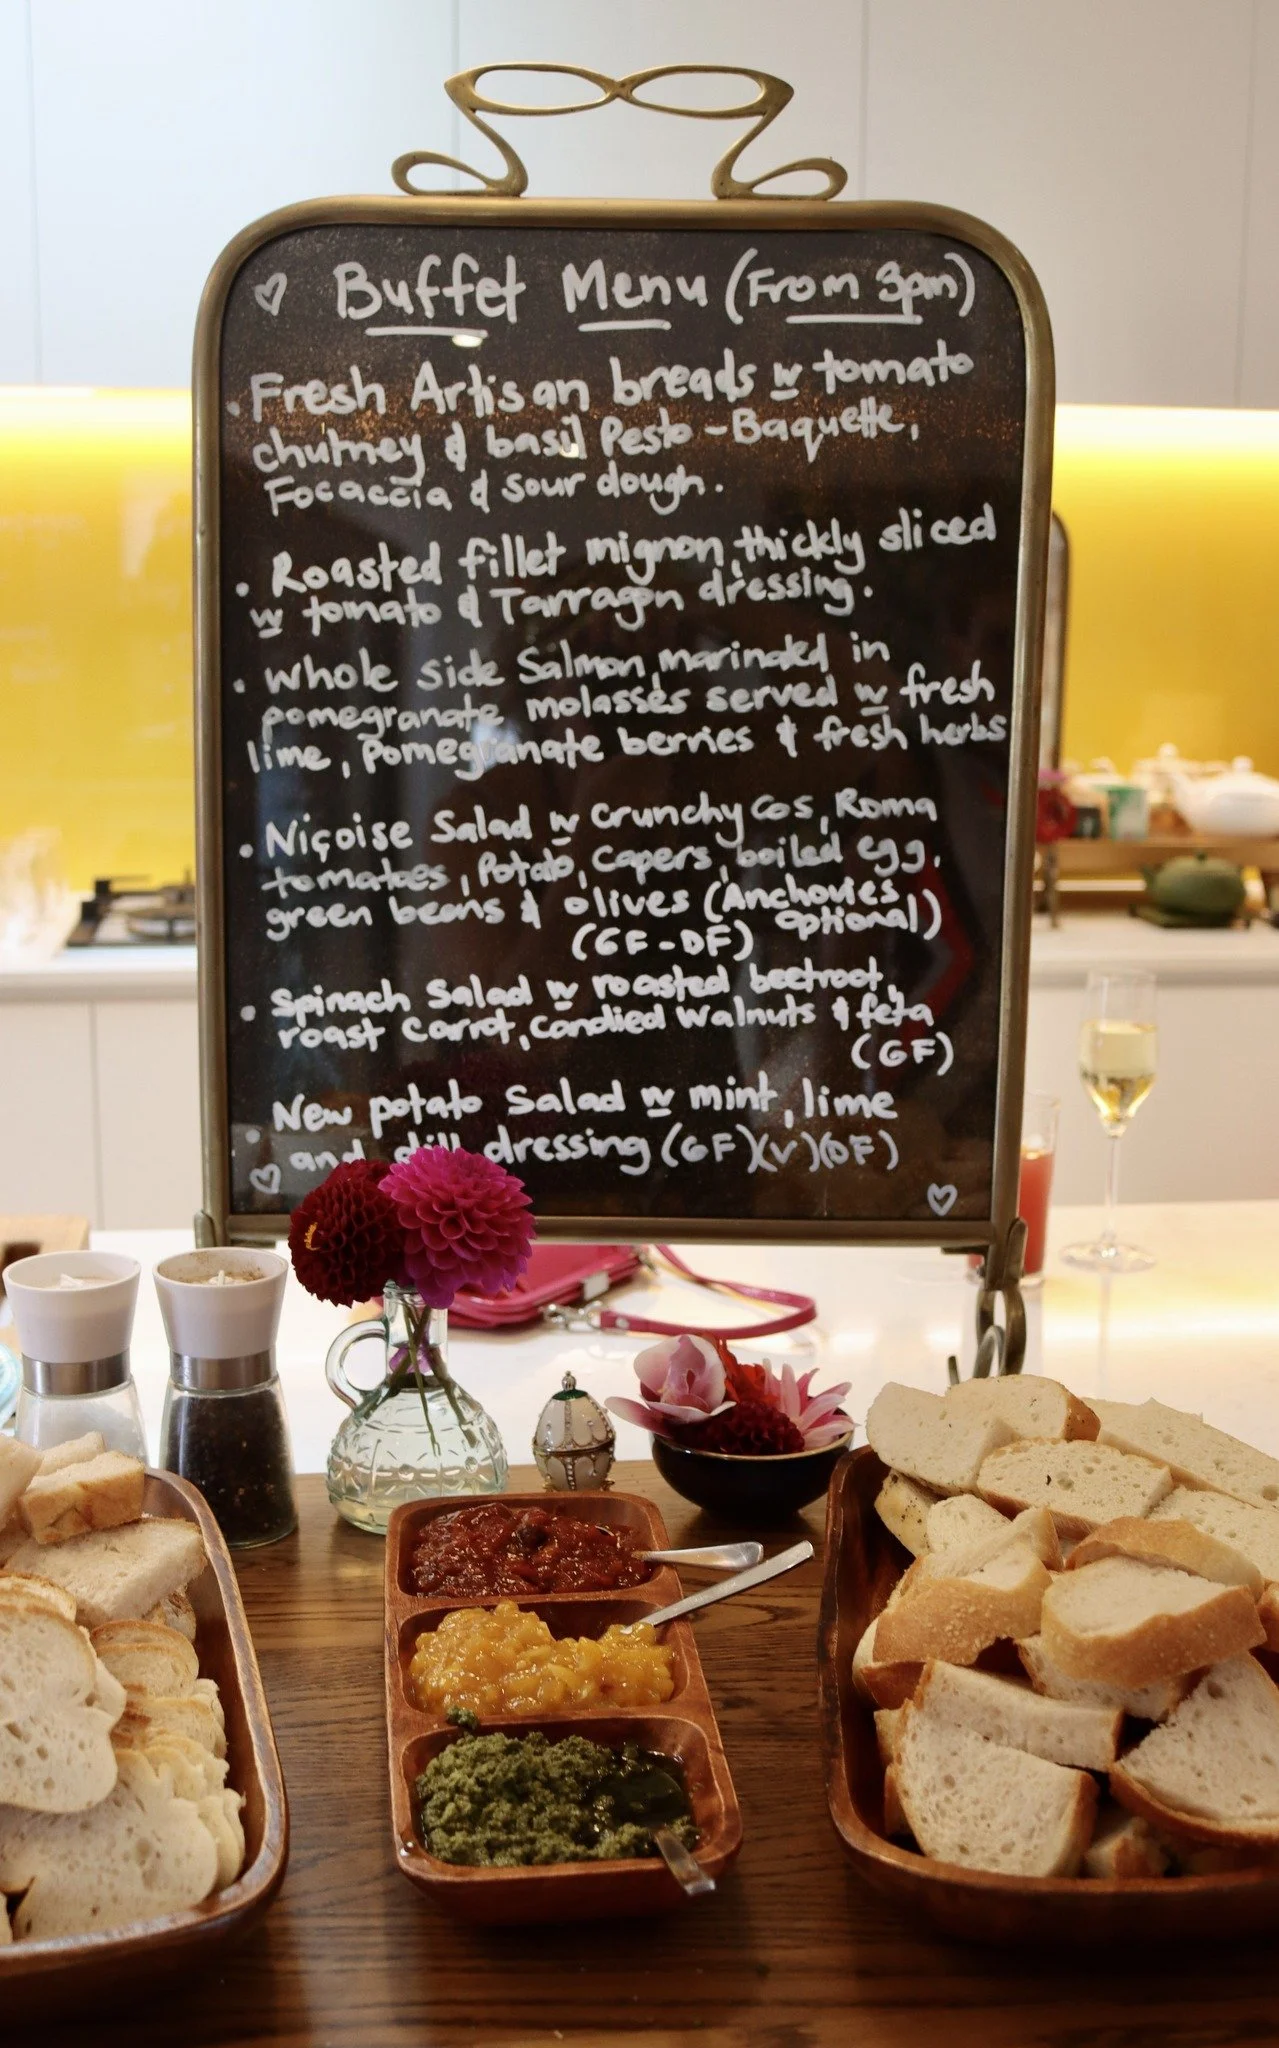 Buffet Menu (From 3pm)
• Fresh Artisan breads w tomato
chutney & basil Pesto - Baquette,
Focaccia & sour dough.
• Roasted fillet mignon, thickly sliced
w tomato & Tarragon dressing.
• Whole side Salmon, marinated in
pomegranate molasses served w fresh
lime, Pomegranate berries & fresh herbs
• Niçoise Salad w Crunchy Cos, Roma
tomatoes, Potato, Capers, boiled egg,
green beans & olives (Anchovies
optional)
(GF-DF)
• Spinach Salad w roasted beetroot,
roast Carrot, Candied Walnuts & feta
(GF)
• New potato Salad w mint, lime
and dill dressing (GF)(V)(DF)